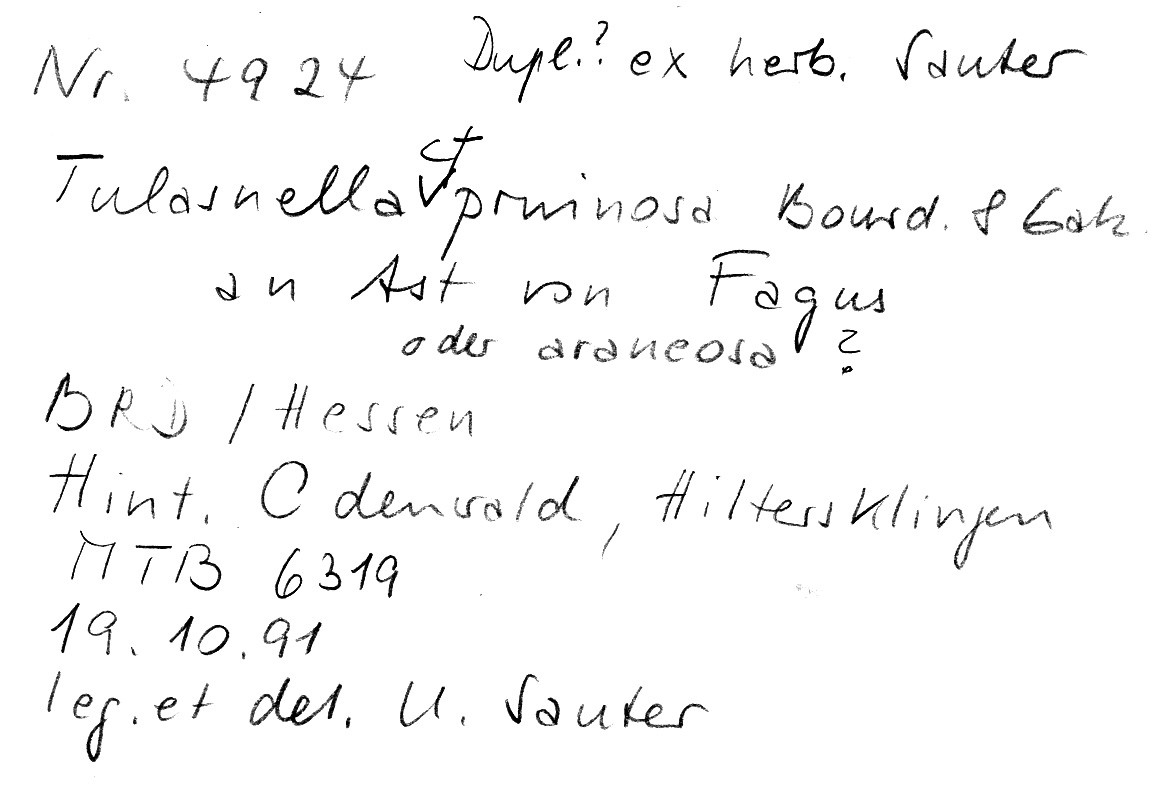 Nr. 4924 Dupl.? ex herb. Sauter
Tulasnella cf pruinosa Bourd. & Galz.
an Ast von Fagus
oder araneosa ?
BRD / Hessen
Hint. Odenwald, Hiltersklingen
MTB 6319
19.10.91
leg. et det. U. Sauter